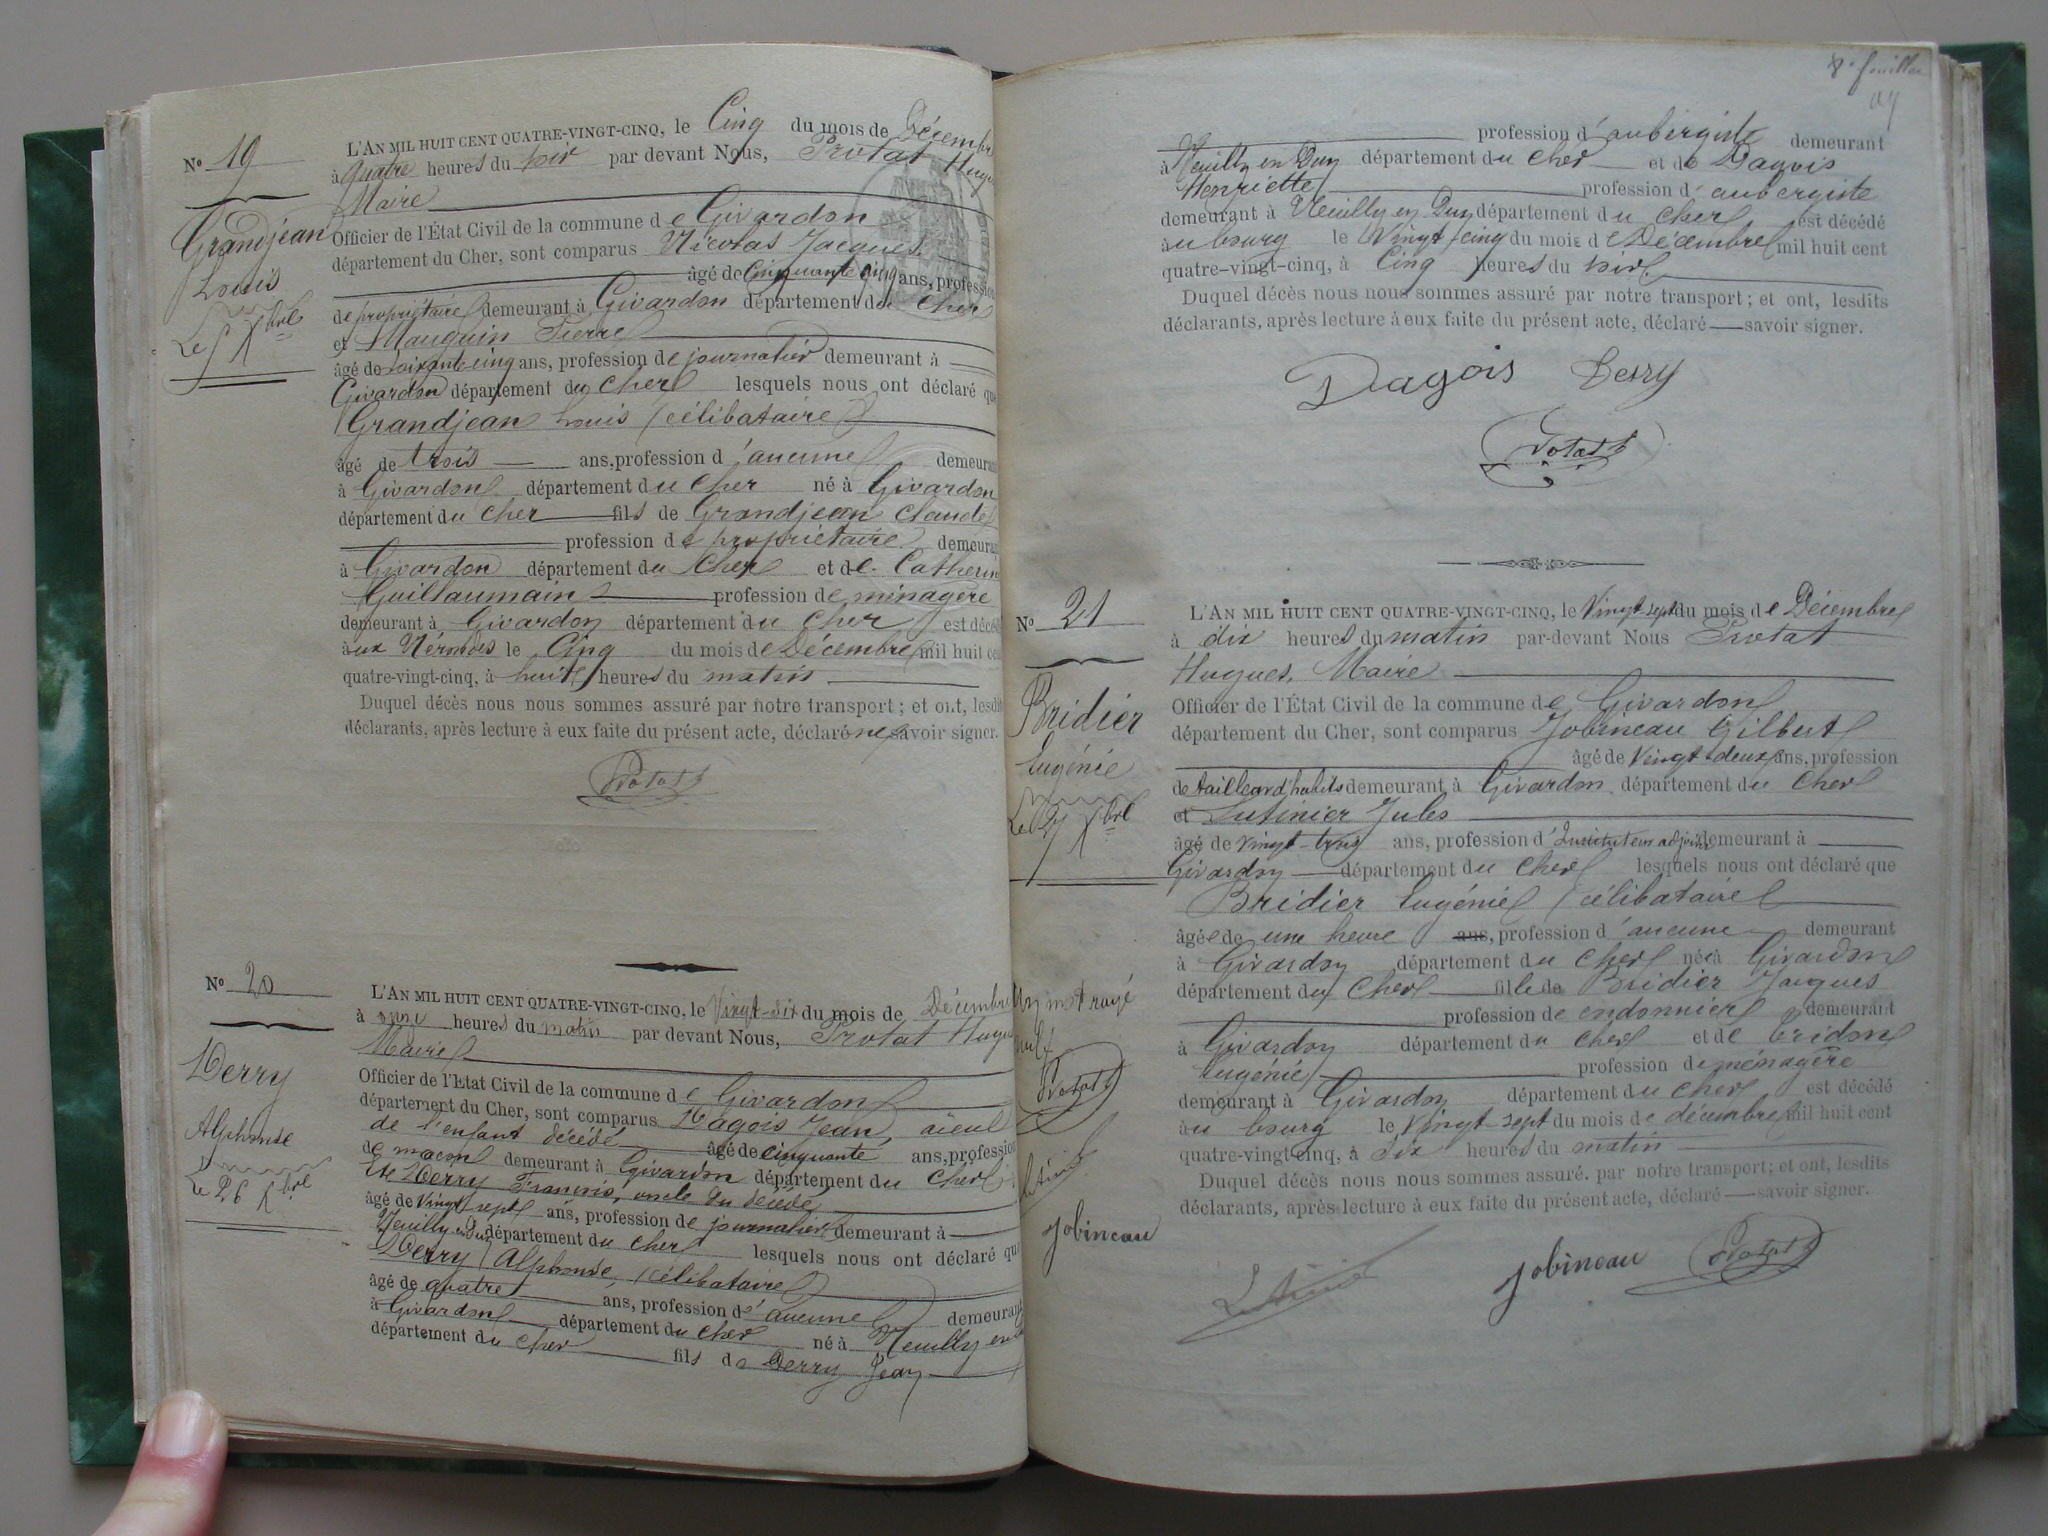 N° 19
Grandjean
Louis
Le 5 Xbre
L'AN MIL HUIT CENT QUATRE-VINGT-CINQ, le Cinq du mois de Décembre
à quatre heures du soir par devant Nous, Protat Hugu
Maire
Officier de l'État Civil de la commune de Givardon
département du Cher, sont comparus Nicolas Jacques
âgé de cinquante cinq ans, profession
de propriétaire demeurant à Givardon département du Cher
et Mauguin Pierre
âgé de soixante cinq ans, profession de journalier demeurant à
Givardon département du Cher lesquels nous ont déclaré que
Grandjean Louis (célibataire)
âgé de trois ans, profession d'aucune demeurant
à Givardon département du Cher né à Givardon
département du Cher fils de Grandjean Claude
profession de propriétaire demeurant
à Givardon département du Cher et de Catherin
Guillaumain profession de ménagère
demeurant à Givardon département du Cher est décé
aux le Cinq du mois de Décembre mil huit cent
quatre-vingt-cinq, à huit heures du matin
Duquel décès nous nous sommes assuré par notre transport ; et ont, lesdits
déclarants, après lecture à eux faite du présent acte, déclaré ne savoir signer.
Protat
N° 20
Derry
Alphonse
Le 26 Xbre
L'AN MIL HUIT CENT QUATRE-VINGT-CINQ, le Vingt-six du mois de Décembre
à onze heures du matin par devant Nous, Protat Hugu
Maire
Officier de l'État Civil de la commune de Givardon
département du Cher, sont comparus Dagois Jean, aïeul
de l'enfant décédé âgé de cinquante ans, profession
de maçon demeurant à Givardon département du Cher
et Derry François, oncle du décédé
âgé de vingt sept ans, profession de journalier demeurant à
Neuilly en Dun département du Cher lesquels nous ont déclaré que
Derry Alphonse, (célibataire)
âgé de quatre ans, profession d'aucune demeurant
à Givardon département du Cher né à Neuilly en
département du Cher fils de Derry Jean
8e feuillet
profession d'aubergiste demeurant
à Neuilly en Dun département du Cher et de Dagois
Henriette profession d'aubergiste
demeurant à Neuilly en Dun département du Cher est décédé
au bourg le Vingt cinq du mois de Décembre mil huit cent
quatre-vingt-cinq, à Cinq heures du soir
Duquel décès nous nous sommes assuré par notre transport ; et ont, lesdits
déclarants, après lecture à eux faite du présent acte, déclaré savoir signer.
Dagois Derry
Protat
N° 21
Bridier
Eugénie
Le 27 Xbre
Un mot rayé
nul
Protat
Jobineau
L'AN MIL HUIT CENT QUATRE-VINGT-CINQ, le Vingt-sept du mois de Décembre
à dix heures du matin par-devant Nous Protat
Hugues, Maire
Officier de l'État Civil de la commune de Givardon
département du Cher, sont comparus Jobineau Gilbert
âgé de Vingt-deux ans, profession
de tailleur d'habits demeurant à Givardon département du Cher
et Lutinier Jules
âgé de vingt-trois ans, profession d'Instituteur adjoint demeurant à
Givardon département du Cher lesquels nous ont déclaré que
Bridier Eugénie (célibataire
âgée de une heure ans, profession d'aucune demeurant
à Givardon département du Cher née à Givardon
département du Cher fille de Bridier Jacques
profession de cordonnier demeurant
à Givardon département du Cher et de Cridon
Eugénie profession de ménagère
demeurant à Givardon département du Cher est décédé
au bourg le vingt-sept du mois de décembre mil huit cent
quatre-vingt-cinq, à six heures du matin
Duquel décès nous nous sommes assuré par notre transport ; et ont, lesdits
déclarants, après lecture à eux faite du présent acte, déclaré savoir signer.
Lutinier Jobineau Protat